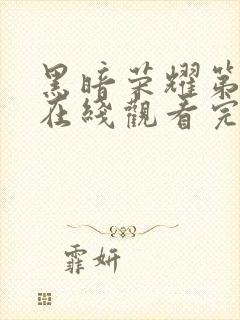 黑暗荣耀第
在线觀看完
霏妍